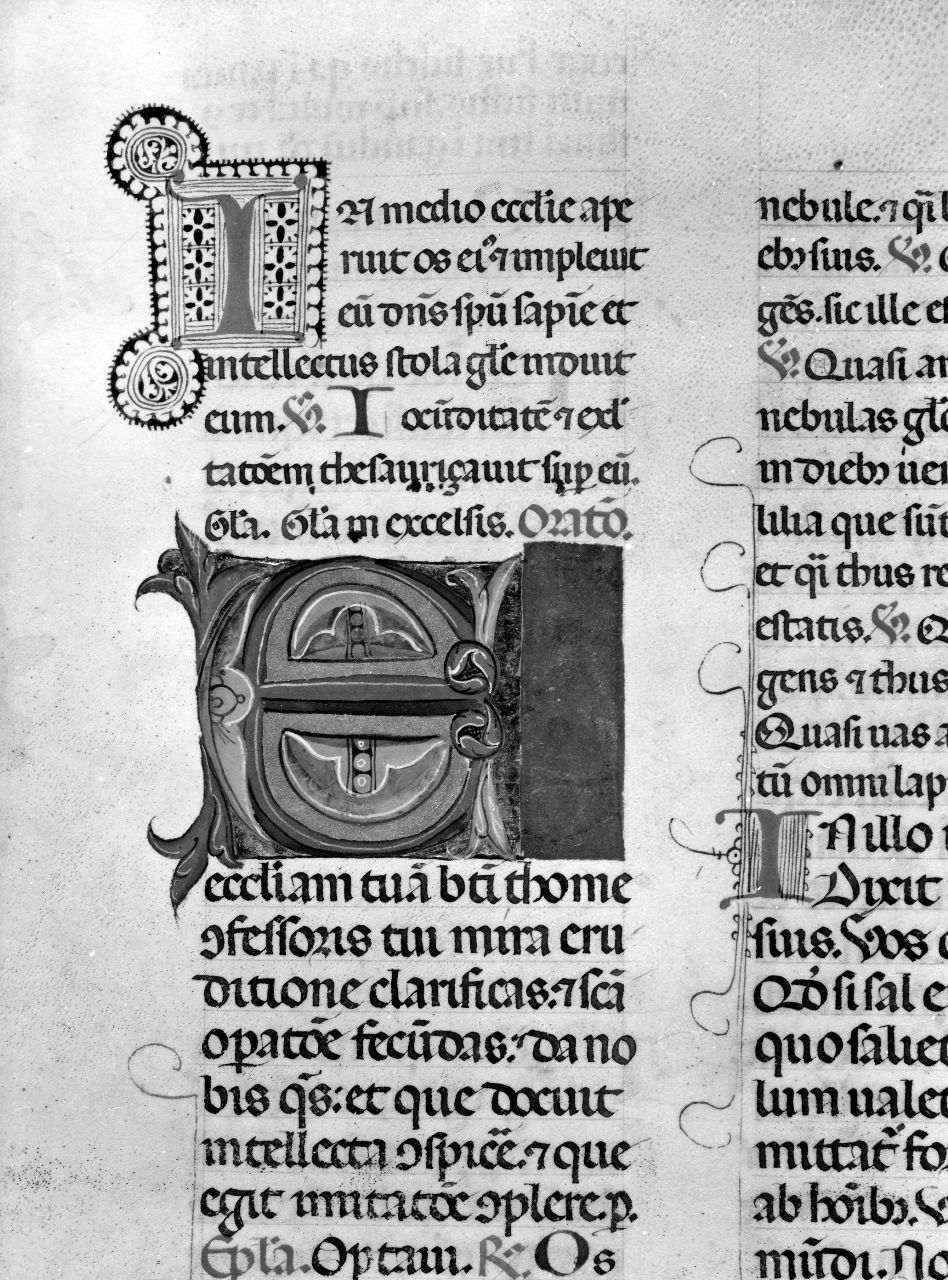 IN medio eccl̄ie ape
ruit os ei⁹ ⁊ impleuit
eū dn̄s spū sapīe et
intellectus stola gl̄e induit
eum. V. I ocūditatē ⁊ exul
tatōem thesauriçauit sup eū.
Gl̄a. Gl̄a in excelsis. Oratō.
eccl̄iam tuā bt̄i thome
ꝯfessoris tui mira eru
ditione clarificas: ⁊ scā
opatōe fecūdas: da no
bis q̄s: et que docuit
intellectu ꝯspicē. ⁊ que
egit imitatōe ꝯplere. p.
Epl̄a. Optaui. R. Os
nebule. ⁊ q̄i
ebꝫ suis. V.
gēs. sic ille
V. Quasi
nebulas gl̄
in diebꝫ uer
lilia que sūt
et q̄i thus re
estatis. V.
gens ⁊ thus
Quasi uas a
tū omni lap
IN illo
Dixit
suis. Vos
Qd̓ si sal e
quo saliet
lum ualet
mittat̄ fo
ab hōibꝫ. V
mūdi. No